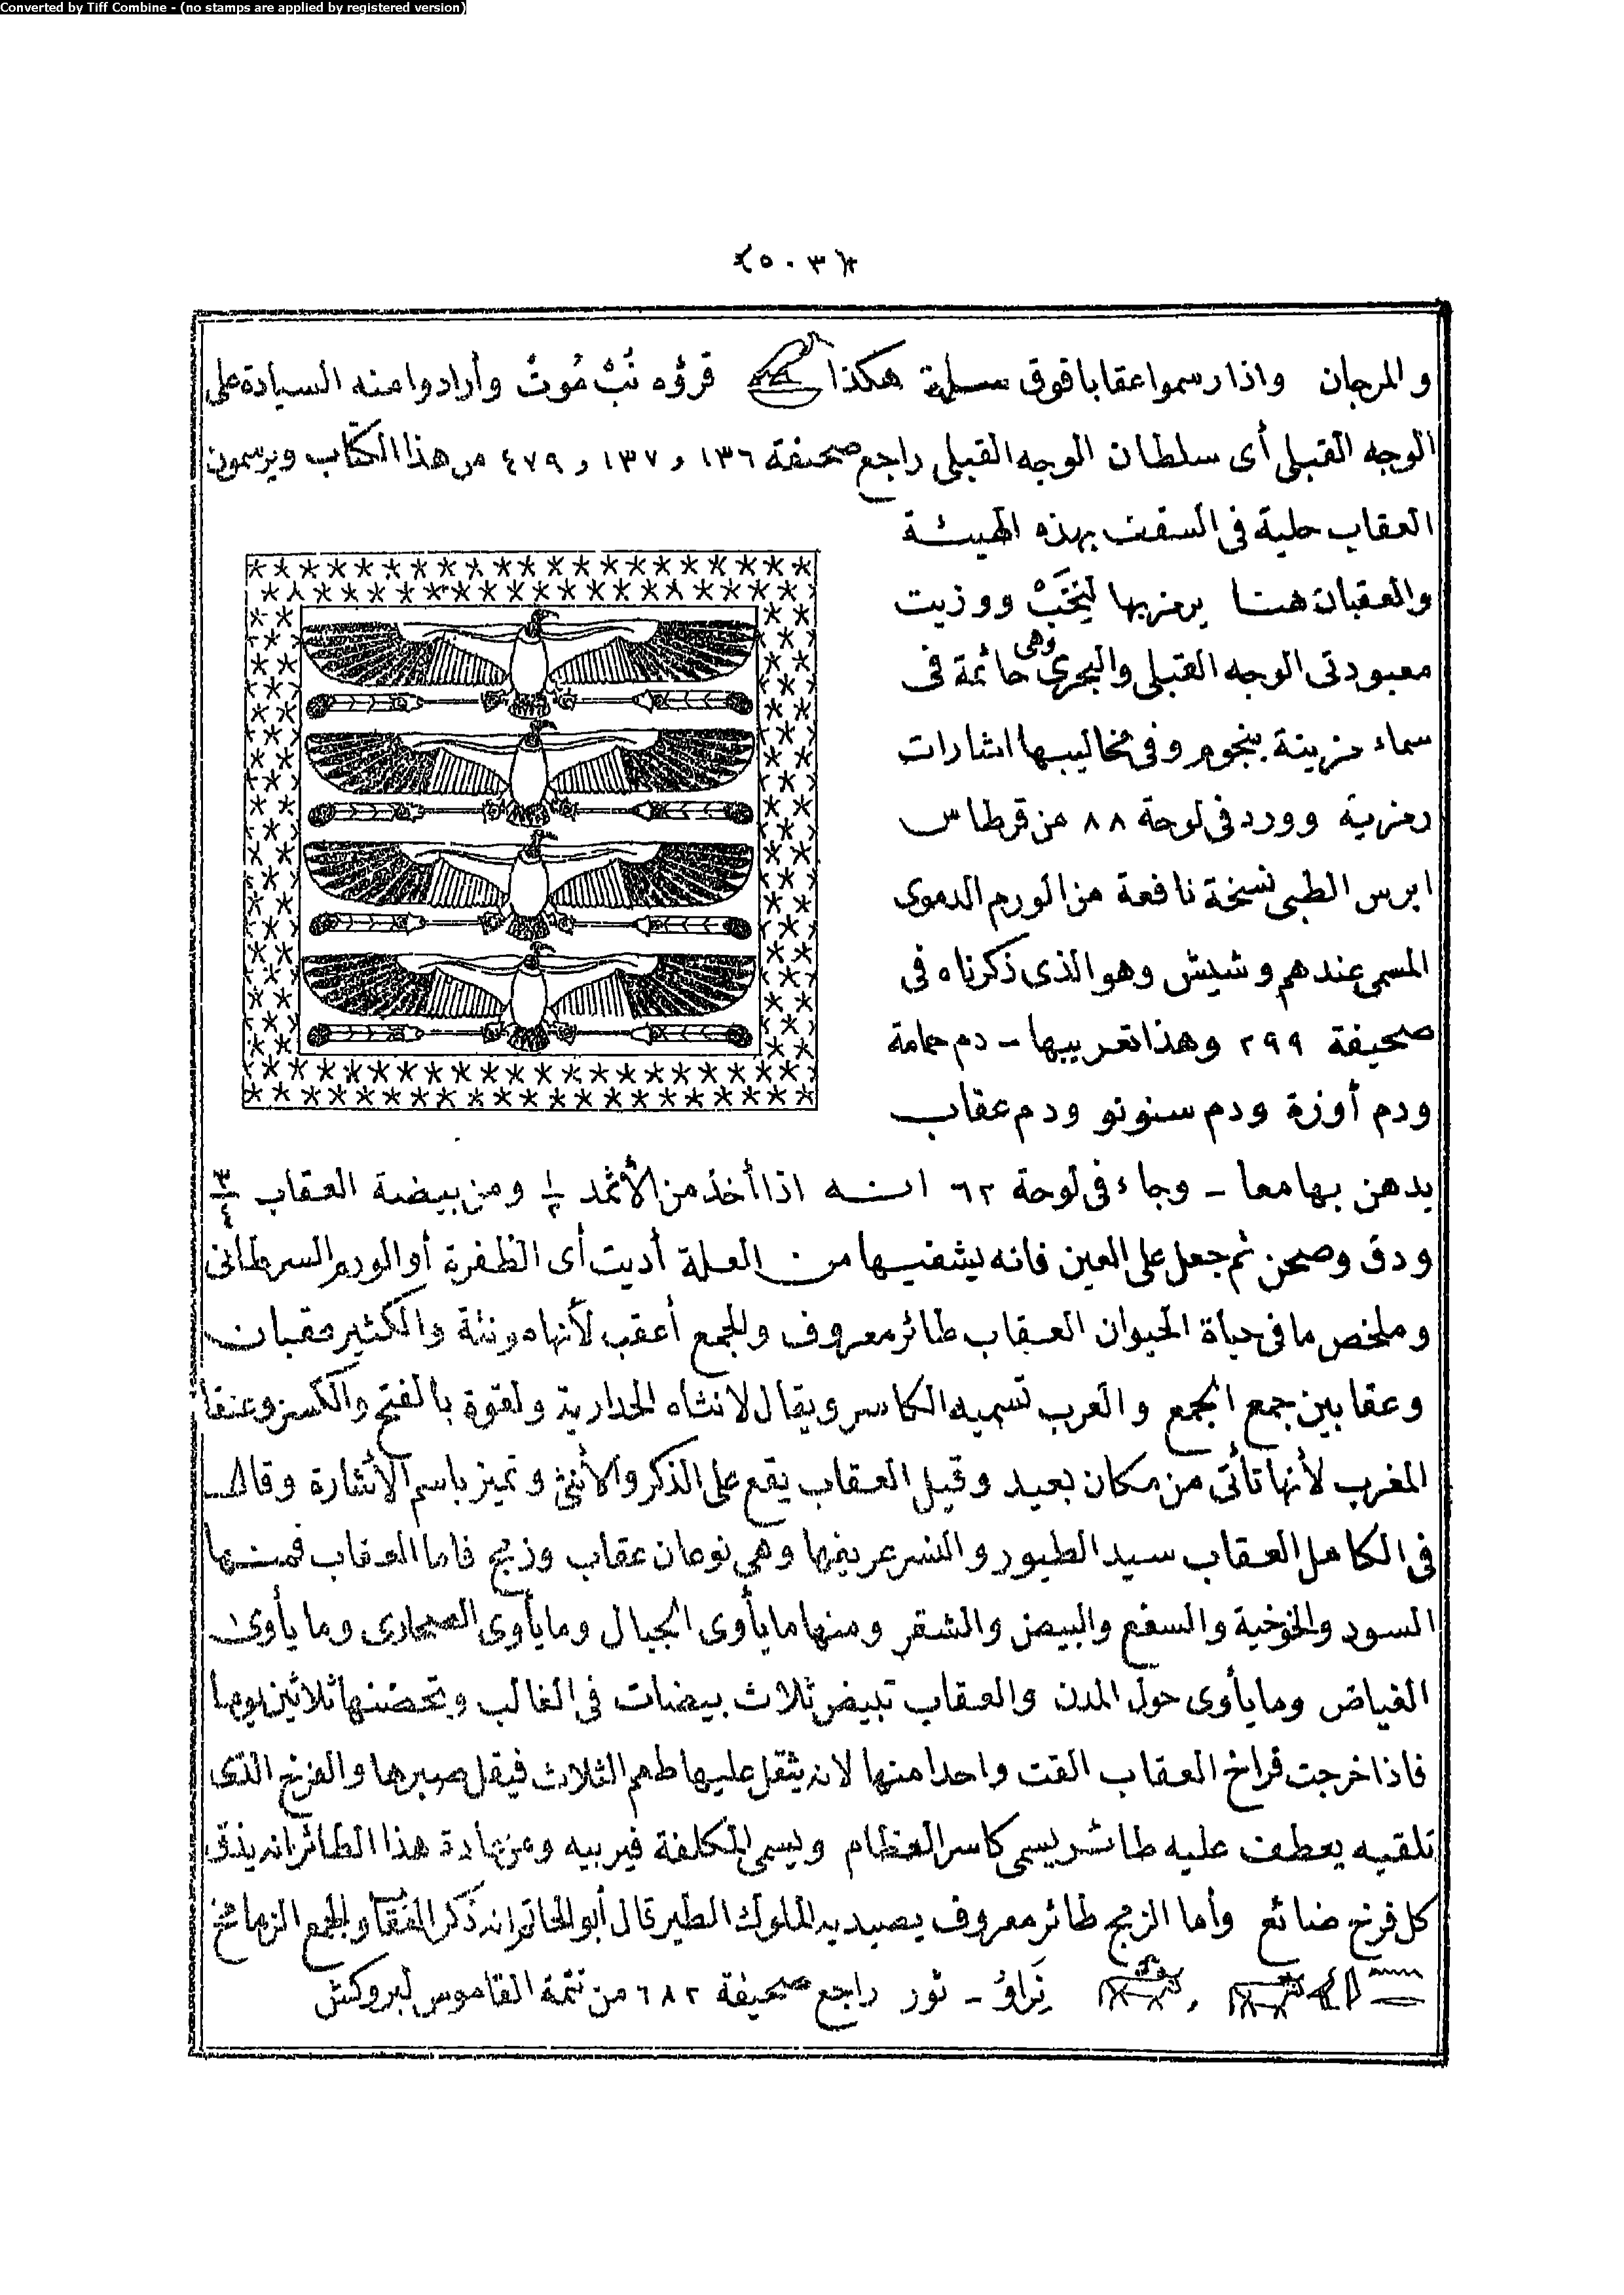 Converted by Tiff Combine - (no stamps are applied by registered version)
﴿٥٠٣﴾
والمرجان واذا رسموا عقابا فوق سلة هكذا قرؤه نُبْ مُوتْ وأرادوا منه السيادة على
الوجه القبلى أى سلطان الوجه القبلى راجع صحيفة ١٣٦ و ١٣٧ و ٤٧٩ من هذا الكتاب ويرسمون
العقاب حلية فى السقف بهذه الهيئة
والعقبان هنا يرمز بها لِنِخَبْ ووزيت
معبودتى الوجه القبلى والبحرى وهى حائمة فى
سماء مزينة بنجوم وفى مخاليبها اشارات
رمزية وورد فى لوحة ٨٨ من قرطاس
ابرس الطبى نسخة نافعة من الورم الدموى
المسمى عندهم وشيش وهو الذى ذكرناه فى
صحيفة ٢٩٩ وهذا تعريبها – دم حمامة
ودم أوزة ودم سنونو ودم عقاب
يدهن بها معا – وجاء فى لوحة ٦٢ انه اذا أخذ من الأثمد ½ ومن بيضة العقاب ¾
ودق وصحن ثم جعل على العين فانه يشفيها من العلة أديت أى الظفرة أو الورم السرطانى
وملخص ما فى حياة الحيوان العقاب طائر معروف والجمع أعقب لأنها مونثة والكثير عقبان
وعقابين جمع الجمع والعرب تسميه الكاسر ويقال لانثاه الخدارية ولقوة بالفتح والكسر وعنقا
المغرب لأنها تأتى من مكان بعيد وقيل العقاب يقع على الذكر والأنثى وتميز باسم الأشارة وقال
فى الكامل العقاب سيد الطيور والنسر عريفها وهى نوعان عقاب وزمج فاما العقاب فمنها
السود والخوخية والسفع والبيض والشقر ومنها ما يأوى الجبال وما يأوى الصحارى وما يأوى
الغياض وما يأوى حول المدن والعقاب تبيض ثلاث بيضات فى الغالب وتحضنها ثلاثين يوما
فاذا خرجت فراخ العقاب القت واحدا منها لانه يثقل عليها طعم الثلاث فيقل صبرها والفرخ الذى
تلقيه يعطف عليه طائر يسمى كاسر العظام ويسمى المكلفة فيربيه ومن عادة هذا الطائر انه يذق
كل فرخ ضائع وأما الزمج طائر معروف يصيد به الملوك الطير قال أبو الحاتم انه ذكر العُقَاب والجمع الزمامج
و نَراوُ – ثور راجع صحيفة ٦٨٢ من تتمة القاموس لبروكش